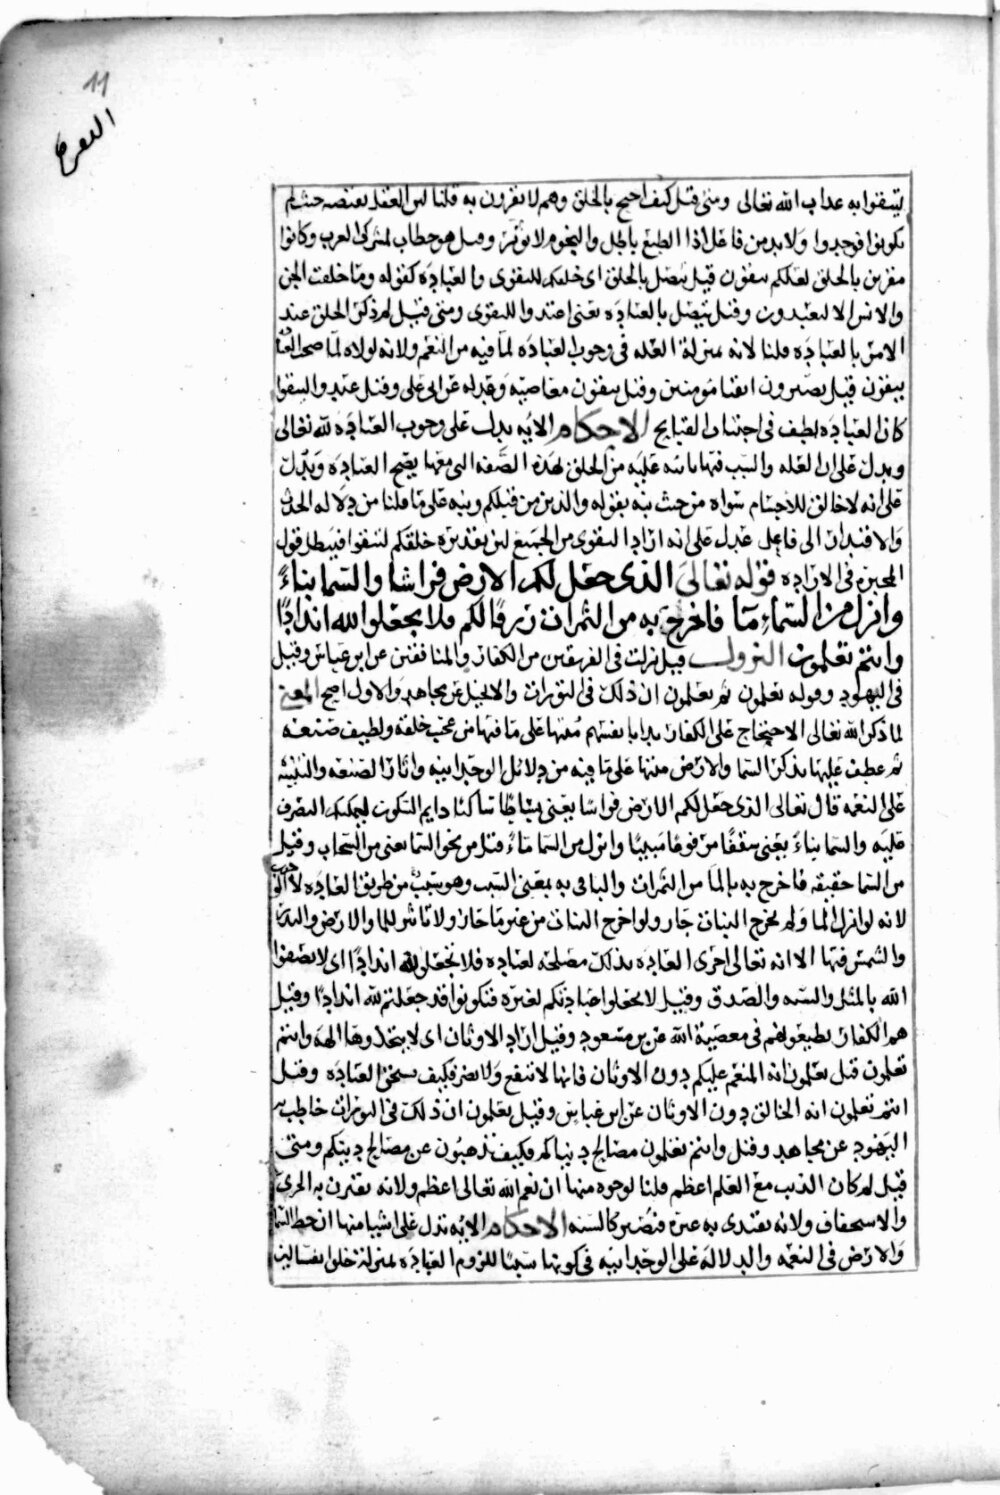 11
البقرة
ليتقوا به عذاب الله تعالى ومتى قيل كيف احتج بالخلق وهم لا يقرون به قلنا لان العقل يقتضيه حيث لم
يكونوا فوجدوا ولا بد من فاعل اذا الطبع باطل والنجوم لا تؤثر وقيل هو خطاب لمشركى العرب وكانوا
مقرين بالخلق لعلكم تتقون قيل يتصل بالخلق اى خلقكم للتقوى والعبادة كقوله وما خلقت الجن
والانس الا ليعبدون وقيل يتصل بالعبادة يعنى اعبدوا للتقوى ومتى قيل لم ذكر الخلق عند
الامر بالعبادة قلنا لانه بمنزلة العلة فى وجوب العبادة لما فيه من النعم ولانه لولاه لما صح
تتقون قيل تصيرون اتقيا مؤمنين وقيل تتقون معاصيه وعذابه عن ابى على وقيل عند
كان العبادة لطيف فى اجتناب القبايح الاحكام الايه تدل على وجوب العبادة لله تعالى
وتدل على ان العله والسبب فيها ما نبه عليه من الخلق لهذه الصفه التى معها يصح العبادة وتدل
على انه لا خالق للاجسام سواه من حيث نبه بقوله والذين من قبلكم وينبه على ما قلنا من دلاله الحدث
والافتقار الى فاعل وتدل على انه اراد التقوى من الجميع لان تقديره خلقكم لتتقوا فيبطل قول
المجبرة فى الاراده قوله تعالى الذى جعل لكم الارض فراشا والسما بناءً
وانزل من السماء ما فاخرج به من الثمرات رزقًا لكم فلا تجعلوا لله اندادًا
وانتم تعلمون النزول قيل نزلت فى الفريقين من الكفار والمنافقين عن ابن عباس وقيل
فى اليهود وقوله تعلمون ثم تعلمون ان ذلك فى التورات والانجيل عن مجاهد والاول اصح المعنى
لما ذكر الله تعالى الاحتجاج على الكفار بدا بانفسهم منبها على ما فيها من عجب خلقه ولطيف صنعه
ثم عطف عليها بذكر السما والارض منبها على ما فيه من دلائل الوحدانيه واثار الصنعه والتنبيه
على النعمه قال تعالى الذى جعل لكم الارض فراشا يعنى بساطًا ساكنا دايم السكون ليمكنك التصرف
عليه والسما بناءً يعنى سقفًا من فوقها مبنيًا وانزل من السما ماءً قيل من نحو السما يعنى من السحاب وقيل
من السما حقيقه فاخرج به بالما من الثمرات والبا فى به بمعنى السبب وهو سبب من طريق العاده لا
لانه لو انزل الما ولم يخرج النبات جاز ولو اخرج النبات من غير ما جاز ولا تاثير للما والارض والبذر
والشمس فيها الا انه تعالى اجرى العاده بذلك مصلحه لعباده فلا تجعلوا لله اندادًا اى لا تصفوا
الله بالمثل والشبه والصدق وقيل لا تجعلوا عبادتكم لغيره فتكونوا قد جعلتم لله اندادًا وقيل
هم الكفار تطيعونهم فى معصية الله عن بن مسعود وقيل اراد الاوثان اى لا تتخذوها الهة وانتم
تعلمون قيل تعلمون انه المنعم عليكم دون الاوثان فانها لا تنفع ولا تضر فكيف تستحق العباده وقيل
انتم تعلمون انه الخالق دون الاوثان عن ابن عباس وقيل تعلمون ان ذلك فى التورات خاطب به
اليهود عن مجاهد وقيل وانتم تعلمون مصالح دنياكم فكيف تذهبون عن مصالح دينكم ومتى
قيل لم كان الذنب مع العلم اعظم قلنا لوجوه منها ان نعم الله تعالى اعظم ولانه يقترن به الجرءة
والاستخفاف ولانه يقتدى به غيره فتصير كالسنه الاحكام الايه تدل على اشيا منها ان حظ السما
والارض فى النعمه والدلاله على الوحدانيه فى كونها سببًا للزوم العباده بمنزلة خلق انفسنا